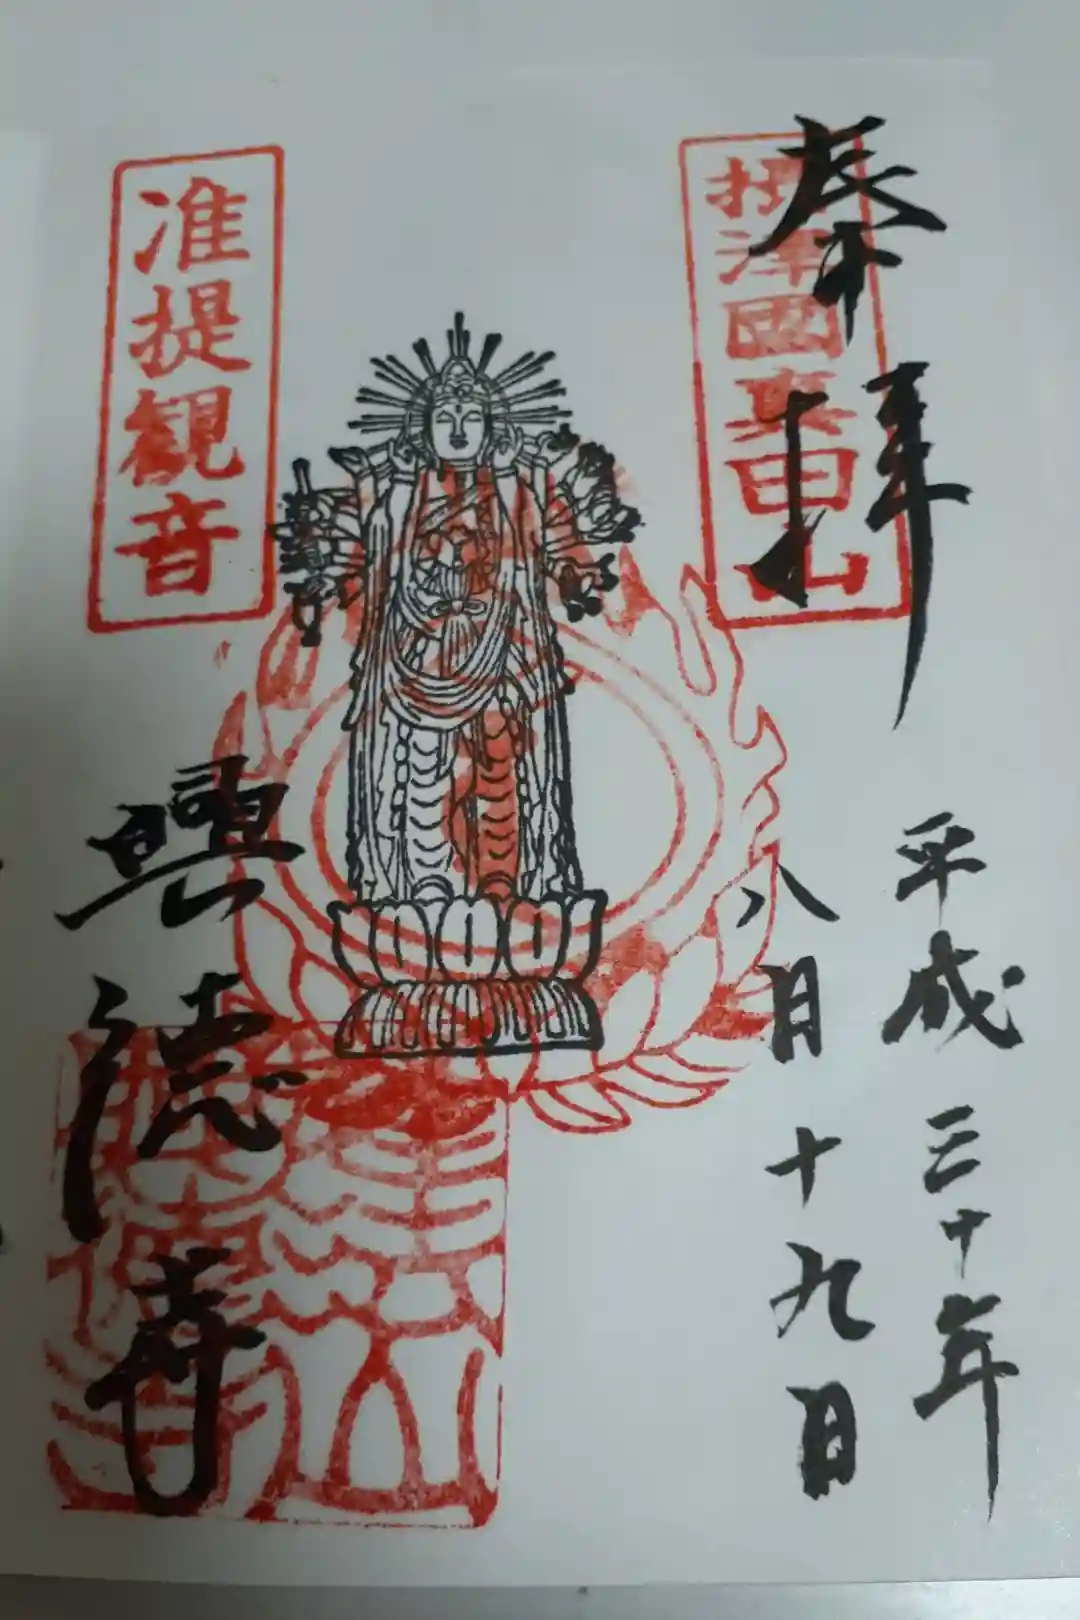 奉拝
摂津國真田山
平成三十年
八月十九日
准提観音
興徳寺